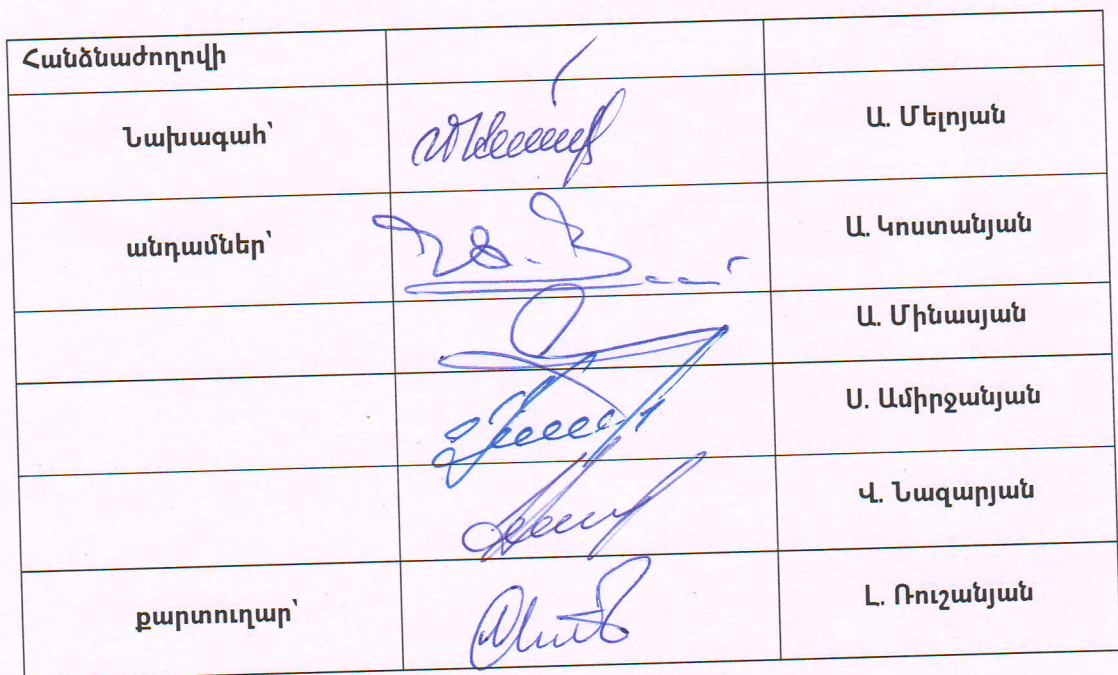 Հանձնաժողովի
Նախագահ՝ Ա. Մելոյան
անդամներ՝ Ա. Կոստանյան
Ա. Մինասյան
Ս. Ամիրջանյան
Վ. Նազարյան
քարտուղար՝ Լ. Ռուշանյան